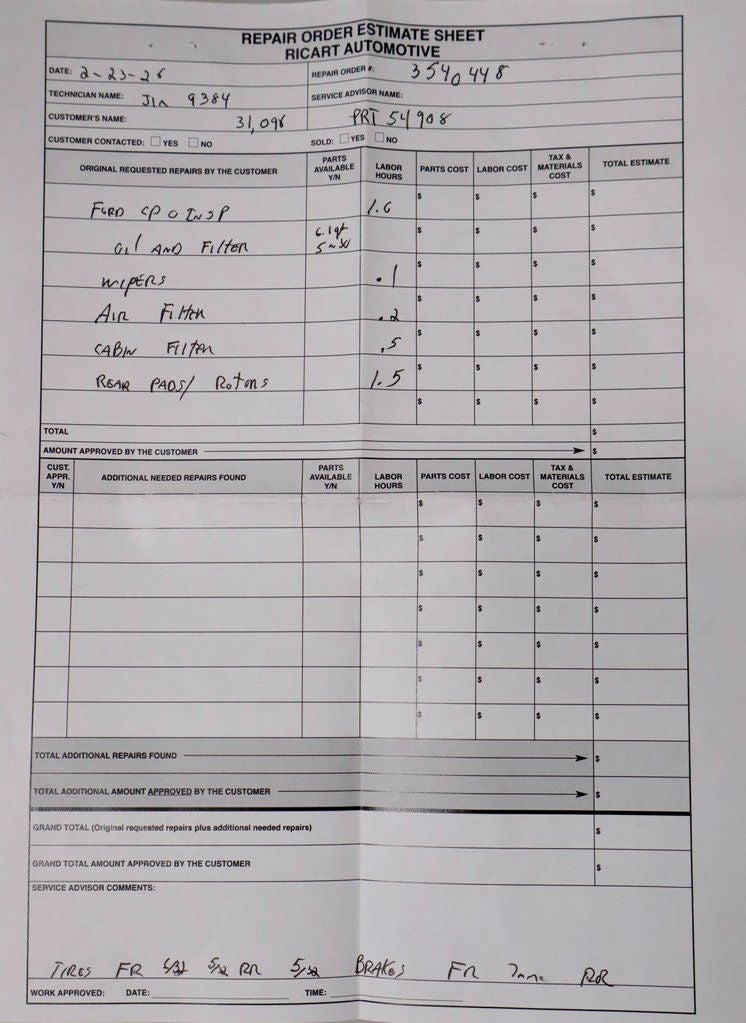 REPAIR ORDER ESTIMATE SHEET
RICART AUTOMOTIVE
DATE: 2-23-26 REPAIR ORDER #: 3540448
TECHNICIAN NAME: Jim 9384 SERVICE ADVISOR NAME:
CUSTOMER'S NAME: 31,096 PRT 54908
CUSTOMER CONTACTED: YES NO SOLD: YES NO
ORIGINAL REQUESTED REPAIRS BY THE CUSTOMER PARTS AVAILABLE Y/N LABOR HOURS PARTS COST LABOR COST TAX & MATERIALS COST TOTAL ESTIMATE
FORD CPO INSP 1.6 $ $ $ $
OIL AND FILTER 6.1qt 5w30 $ $ $ $
WIPERS .1 $ $ $ $
AIR FILTER .2 $ $ $ $
CABIN FILTER .5 $ $ $ $
REAR PADS/ ROTORS 1.5 $ $ $ $
$ $ $ $
TOTAL $
AMOUNT APPROVED BY THE CUSTOMER $
CUST. APPR. Y/N ADDITIONAL NEEDED REPAIRS FOUND PARTS AVAILABLE Y/N LABOR HOURS PARTS COST LABOR COST TAX & MATERIALS COST TOTAL ESTIMATE
$ $ $ $
$ $ $ $
$ $ $ $
$ $ $ $
$ $ $ $
$ $ $ $
$ $ $ $
TOTAL ADDITIONAL REPAIRS FOUND $
TOTAL ADDITIONAL AMOUNT APPROVED BY THE CUSTOMER $
GRAND TOTAL (Original requested repairs plus additional needed repairs) $
GRAND TOTAL AMOUNT APPROVED BY THE CUSTOMER $
SERVICE ADVISOR COMMENTS:
TIRES FR 5/32 RR 5/32 BRAKES FR 7mm
WORK APPROVED: DATE: TIME: